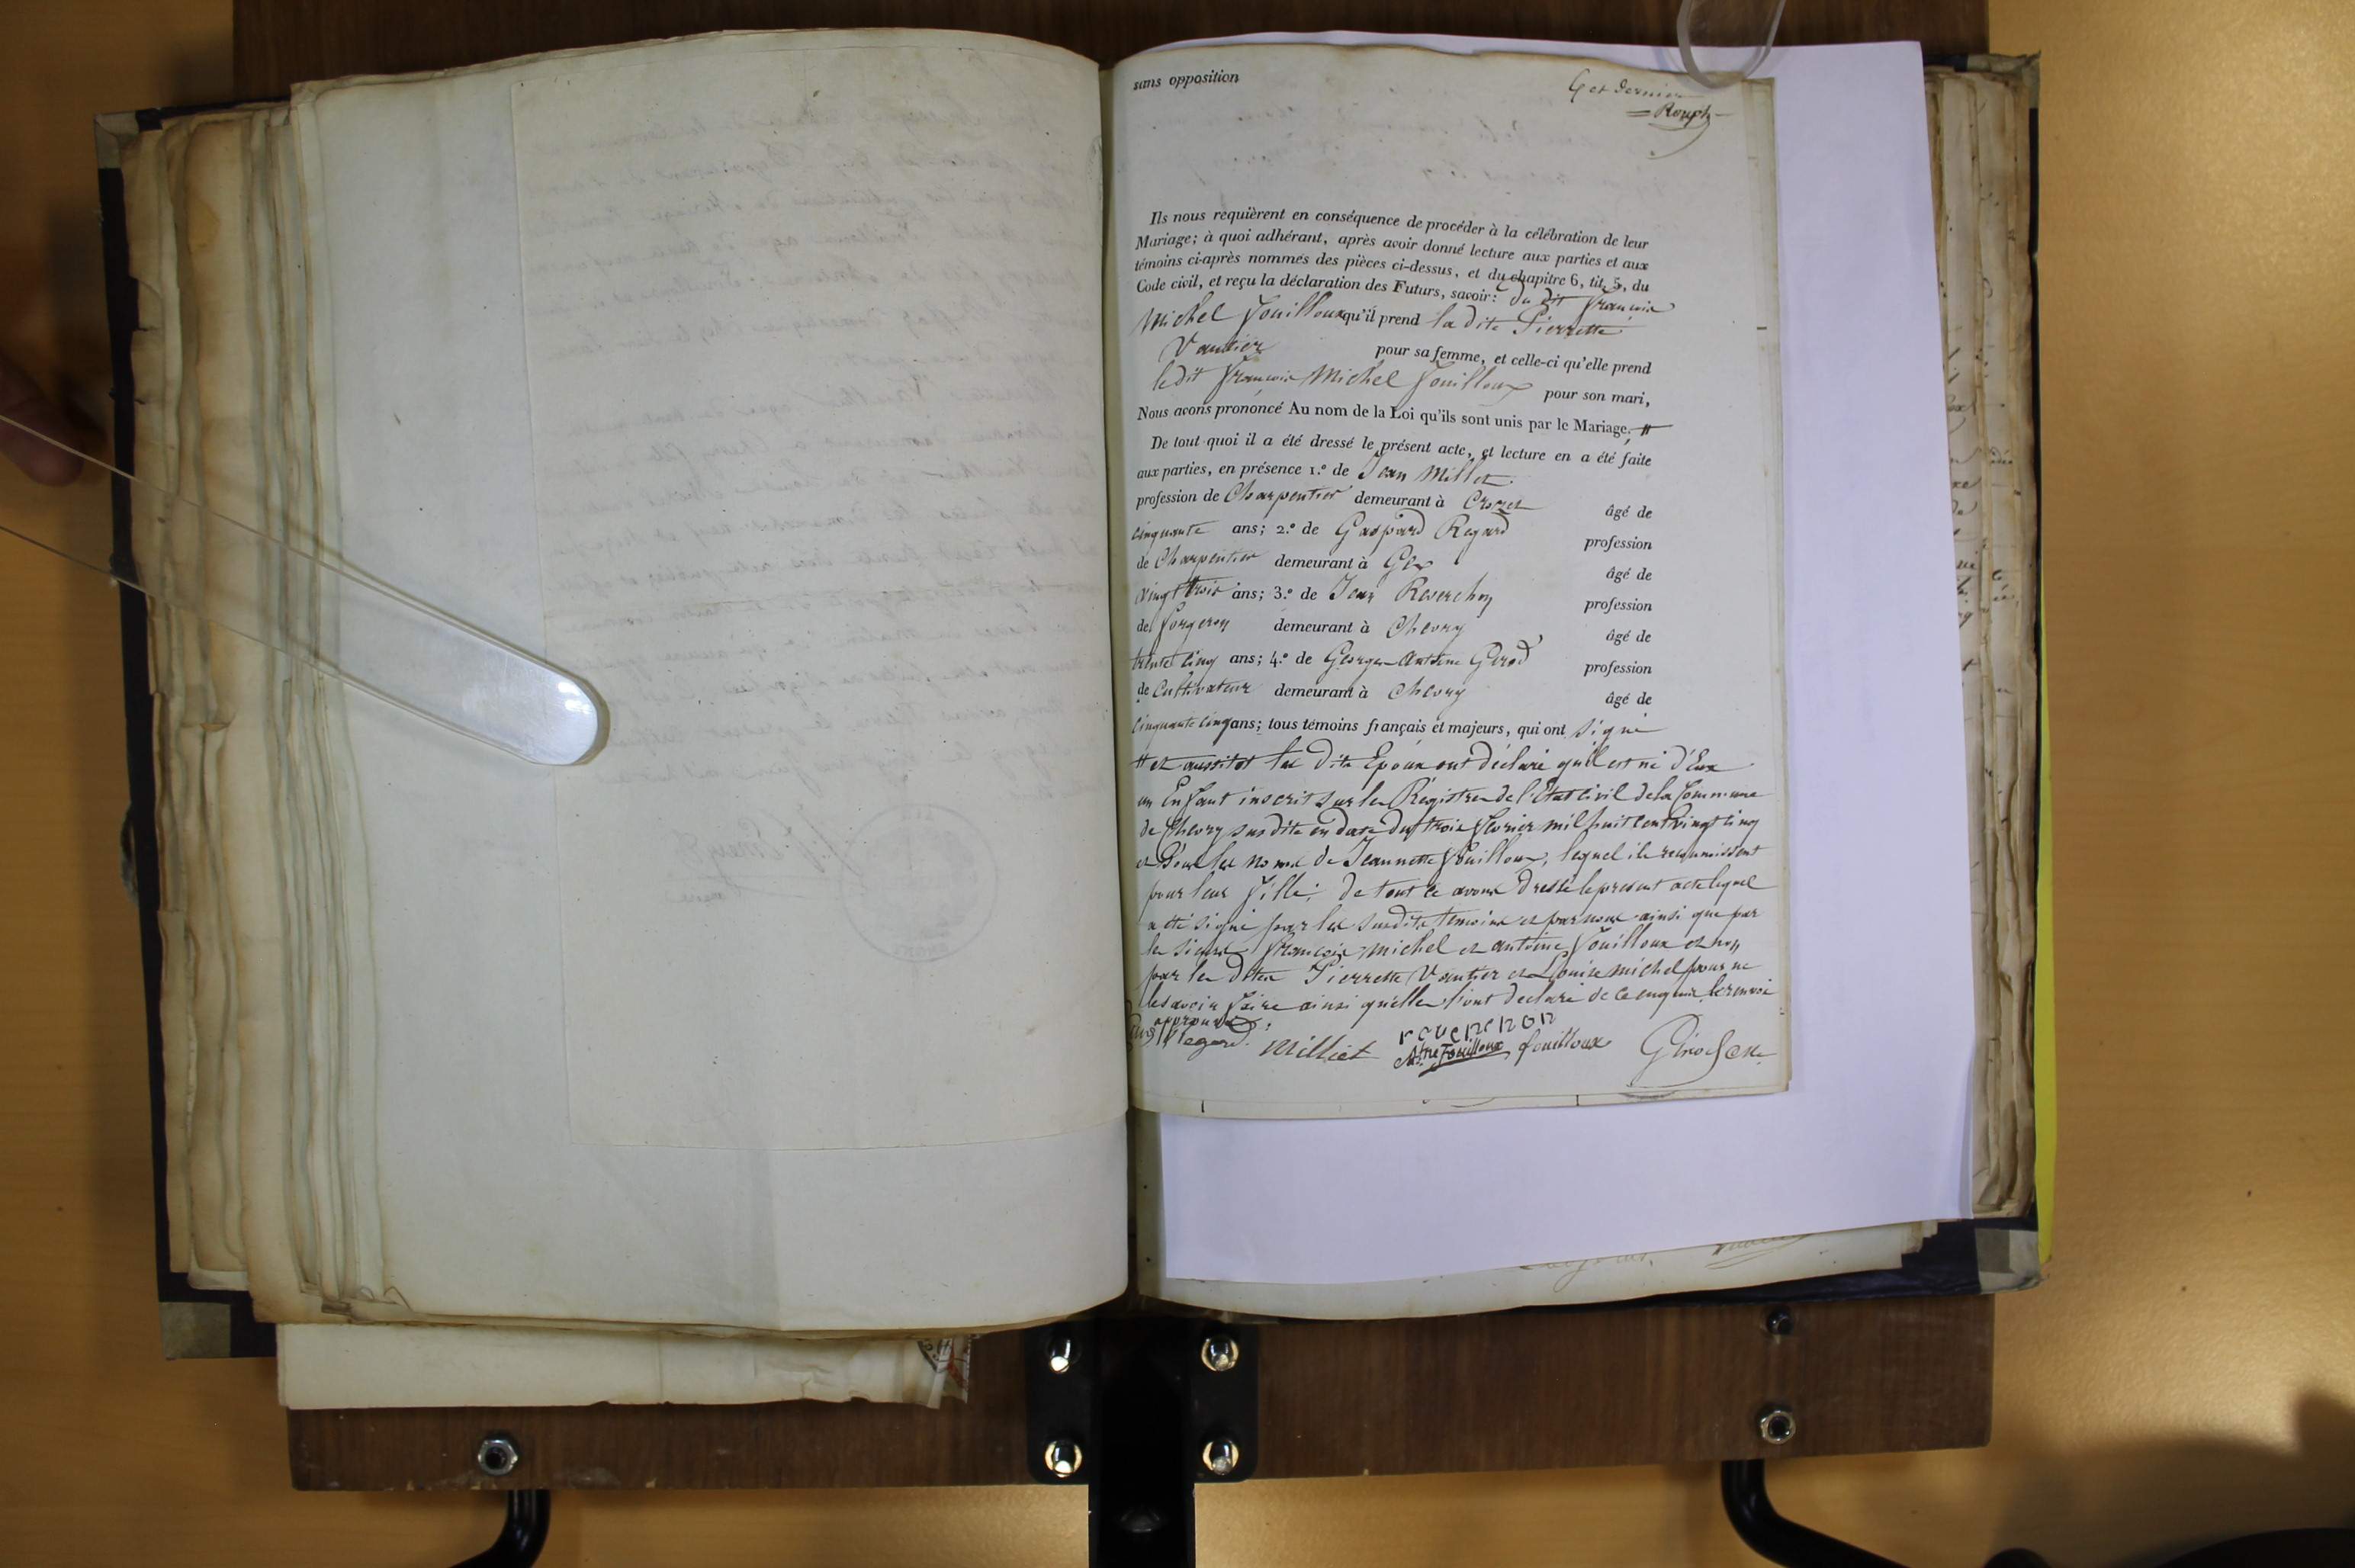 sans opposition
6 et dernier
= Rouph
Ils nous requièrent en conséquence de procéder à la célébration de leur
Mariage; à quoi adhérant, après avoir donné lecture aux parties et aux
témoins ci-après nommés des pièces ci-dessus, et du chapitre 6, tit. 5, du
Code civil, et reçu la déclaration des Futurs, savoir: du dit françois
Michel fouilloux qu'il prend la dite Pierrette
Vautier pour sa femme, et celle-ci qu'elle prend
le dit françois Michel fouilloux pour son mari,
Nous avons prononcé Au nom de la Loi qu'ils sont unis par le Mariage. #
De tout quoi il a été dressé le présent acte, et lecture en a été faite
aux parties, en présence 1.º de Jean Milliet
profession de Charpentier demeurant à Crozet âgé de
cinquante ans; 2.º de Gaspard Regard profession
de Charpentier demeurant à Gex âgé de
vingt trois ans; 3.º de Jean Reverchon profession
de forgeron demeurant à Chevry âgé de
trente cinq ans; 4.º de George Antoine Girod profession
de Cultivateur demeurant à Chevry âgé de
cinquante cinq ans; tous témoins français et majeurs, qui ont signé
# et aussitot les dits Epoux ont déclaré qu'il est né d'Eux
un Enfant inscrit sur les Régistres de l'Etat civil de la Commune
de Chevry sus dite en date du trois fevrier mil huit cent vingt cinq
et sous les noms de Jeannette fouilloux, lequel ils reconnoissent
pour leur fille; de tout ce avons dressé le present acte lequel
a été signé par les susdits temoins et par nous ainsi que par
les sieurs françois michel et antoine fouilloux et non
par les dites Pierrette Vautier et Louise michel pour ne
le savoir faire ainsi qu'elles l'ont declaré de ce enquis le renvoi
approuvé
Regard Milliet reverchon
Ant.ne Fouilloux fouilloux